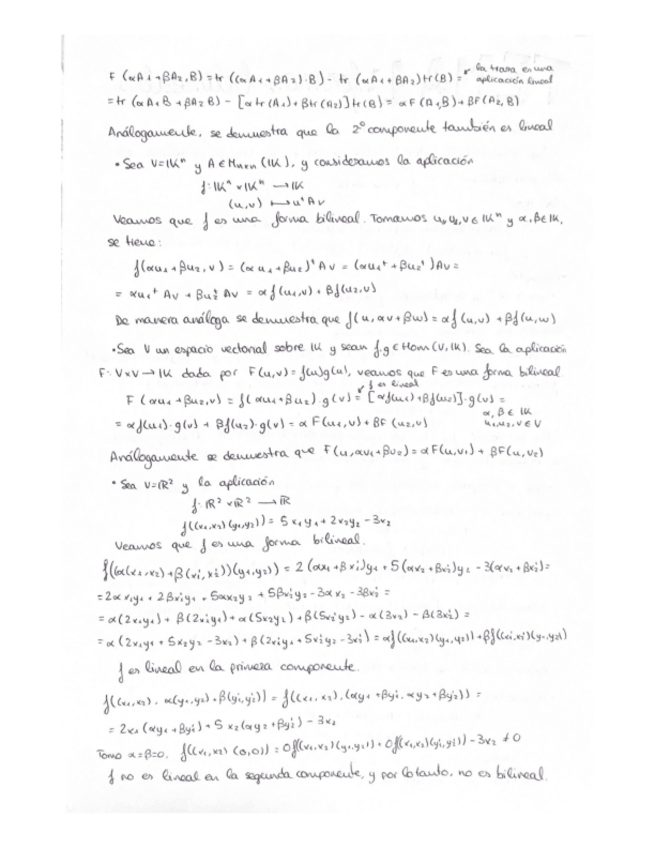 F (αA₁+βA₂, B) = tr ((αA₁+βA₂)·B) - tr (αA₁+βA₂) tr(B) = la traza es una aplicación lineal
= tr (αA₁B + βA₂B) - [αtr(A₁) + βtr(A₂)] tr(B) = αF(A₁,B) + βF(A₂,B)
Análogamente, se demuestra que la 2º componente también es lineal
• Sea V=IKⁿ y A∈Mnxn(IK), y consideramos la aplicación
f: IKⁿ x IKⁿ → IK
(u,v) ↦ uᵗAv
Veamos que f es una forma bilineal. Tomamos u₁, u₂, v ∈ IKⁿ y α, β ∈ IK,
se tiene:
f(αu₁ + βu₂, v) = (αu₁ + βu₂)ᵗ Av = (αu₁ᵗ + βu₂ᵗ) Av =
= αu₁ᵗ Av + βu₂ᵗ Av = αf(u₁,v) + βf(u₂,v)
De manera análoga se demuestra que f(u, αv+βw) = αf(u,v) + βf(u,w)
• Sea V un espacio vectorial sobre IK y sean f,g ∈ Hom(V,IK). Sea la aplicación
F: VxV → IK dada por F(u,v) = f(u)g(v), veamos que F es una forma bilineal
f es lineal
F(αu₁ + βu₂, v) = f(αu₁ + βu₂)·g(v) = [αf(u₁) + βf(u₂)]·g(v) =
= αf(u₁)·g(v) + βf(u₂)·g(v) = αF(u₁,v) + βF(u₂,v) α, β ∈ IK
u₁,u₂,v ∈ V
Análogamente se demuestra que F(u, αv₁+βv₂) = αF(u,v₁) + βF(u,v₂)
• Sea V=IR² y la aplicación
f: IR² x IR² → IR
f((x₁,x₂)(y₁,y₂)) = 5x₁y₁ + 2x₂y₂ - 3x₂
Veamos que f es una forma bilineal.
f((α(x₁,x₂) + β(x₁',x₂'))(y₁,y₂)) = 2(αx₁+βx₁')y₁ + 5(αx₂+βx₂')y₂ - 3(αx₂+βx₂') =
= 2αx₁y₁ + 2βx₁'y₁ + 5αx₂y₂ + 5βx₂'y₂ - 3αx₂ - 3βx₂' =
= α(2x₁y₁) + β(2x₁'y₁) + α(5x₂y₂) + β(5x₂'y₂) - α(3x₂) - β(3x₂') =
= α(2x₁y₁ + 5x₂y₂ - 3x₂) + β(2x₁'y₁ + 5x₂'y₂ - 3x₂') = αf((x₁,x₂)(y₁,y₂)) + βf((x₁',x₂')(y₁,y₂))
f es lineal en la primera componente.
f((x₁,x₂), α(y₁,y₂) + β(y₁',y₂')) = f((x₁,x₂), (αy₁+βy₁', αy₂+βy₂')) =
= 2x₁(αy₁+βy₁') + 5x₂(αy₂+βy₂') - 3x₂
Tomo α=β=0. f((x₁,x₂) (0,0)) = 0f((x₁,x₂)(y₁,y₂)) + 0f((x₁,x₂)(y₁',y₂')) - 3x₂ ≠ 0
f no es lineal en la segunda componente, y por lo tanto, no es bilineal.